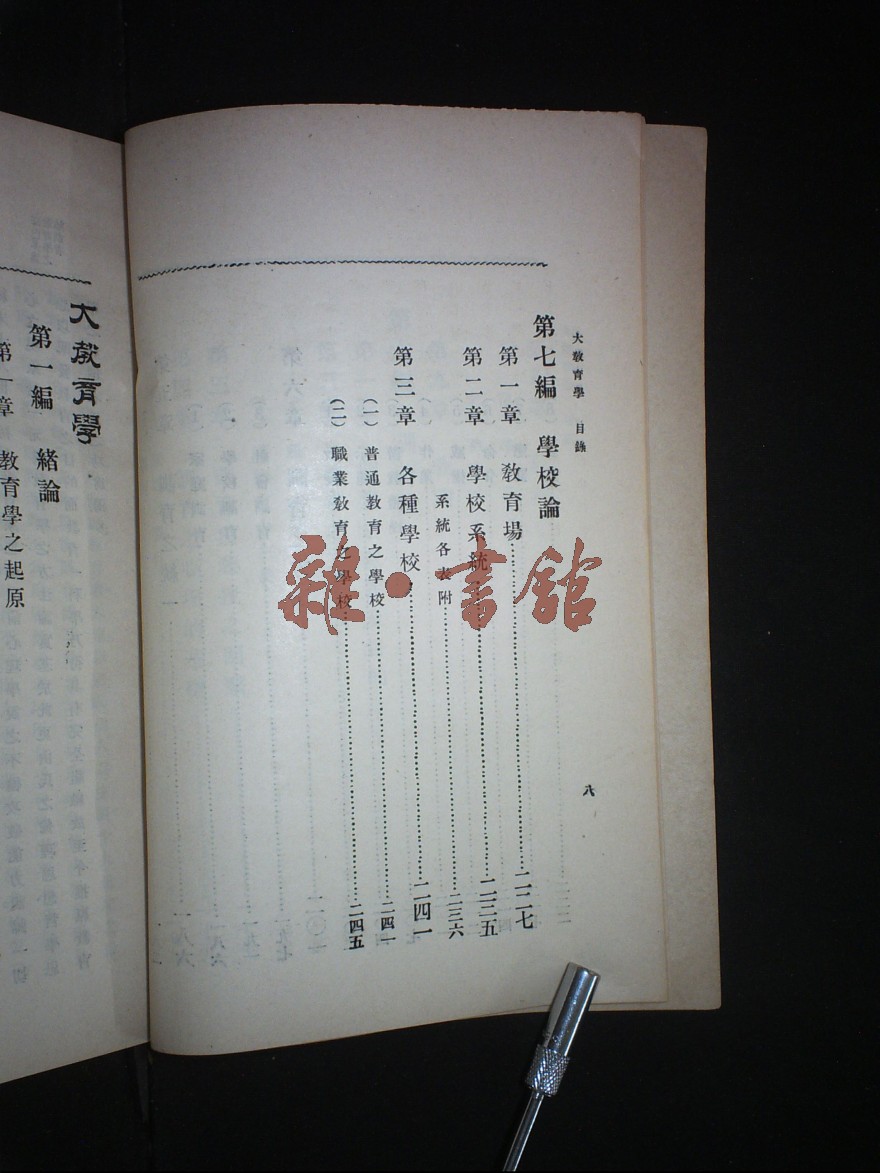 大教育學 目錄
第七編 學校論
第一章 教育場……二二七
第二章 學校系統……二三五
系統各表附……二三六
第三章 各種學校……二四一
(一)普通教育之學校……二四一
(二)職業教育之學校……二四五
八
大教育學
第一編 緒論
第一章 教育學之起原
雜·書館